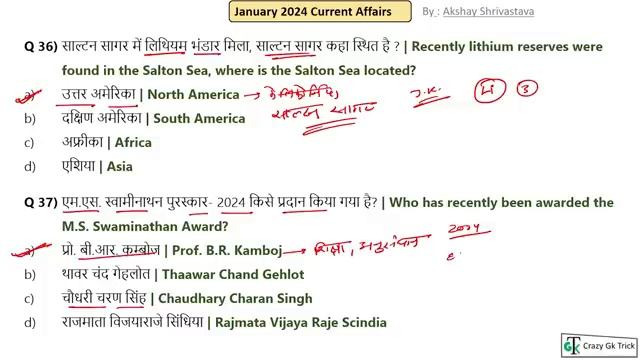 January 2024 Current Affairs
By : Akshay Shrivastava
Q 36) साल्टन सागर में लिथियम भंडार मिला, साल्टन सागर कहा स्थित है ? | Recently lithium reserves were
found in the Salton Sea, where is the Salton Sea located?
a) उत्तर अमेरिका | North America
b) दक्षिण अमेरिका | South America
साल्टन सागर
c) अफ्रीका | Africa
d) एशिया | Asia
Q 37) एम.एस. स्वामीनाथन पुरस्कार- 2024 किसे प्रदान किया गया है? | Who has recently been awarded the
M.S. Swaminathan Award?
2004
a) प्रो. बी.आर. कम्बोज | Prof. B.R. Kamboj शिक्षा, अनुसंधान
b) थावर चंद गेहलोत | Thaawar Chand Gehlot
c) चौधरी चरण सिंह | Chaudhary Charan Singh
d) राजमाता विजयाराजे सिंधिया | Rajmata Vijaya Raje Scindia
GK
Crazy Gk Trick